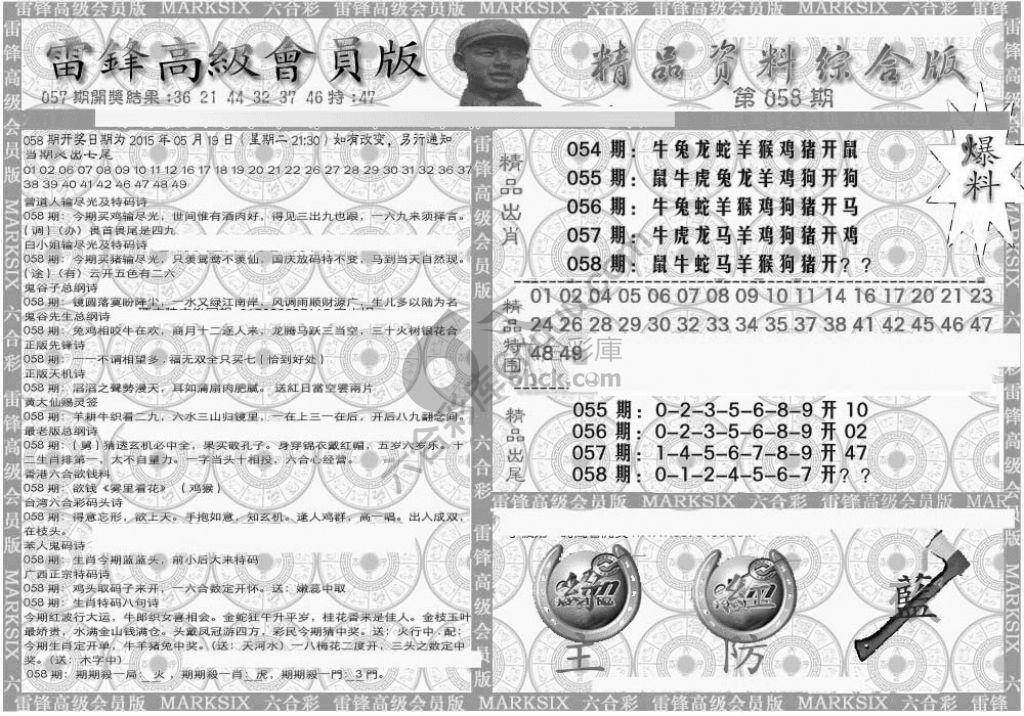 雷锋高级会员版 MARKSIX 六合彩 雷锋高级会员版 MARKSIX 六合彩 雷锋高级会员版 MARKSIX 六合彩
雷鋒高級會員版
精品资料综合版
057期開獎結果:36 21 44 32 37 46特:47
第058期
058 期开奖日期为 2015 年 05 月 19 日（星期二 21:30）如有改变，另行通知
当期必出七尾
01 02 06 07 08 09 10 11 12 16 17 18 19 20 21 22 26 27 28 29 30 31 32 36 37
38 39 40 41 42 46 47 48 49
曾道人输尽光及特码诗
058 期：今期买鸡输尽光，世间惟有酒肉好，得见三出九也跟，一六九来须择言。
{调}{办}畏首畏尾是四九
白小姐输尽光及特码诗
058 期：今期买猪输尽光，只羡鸳鸯不羡仙，国庆放码特不变，马到当天自然现。
{途}{有}云开五色有二六
鬼谷子总纲诗
058 期：镜圆落寞盼降尘，一水又绿江南岸，风调雨顺财源广，生儿多以陆为名
鬼谷先生总纲诗
058 期：兔鸡相咬牛在欢，商月十二逐人来，龙腾马跃三当空，三十火树银花合
正版先锋诗
058 期：一一不谓相望多，福无双全只买七{恰到好处}
正版天机诗
058 期：滔滔之聲勢漫天，耳如蒲扇肉肥腻。送紅日當空雲兩片
黄大仙赐灵签
058 期：羊耕牛织看二九，六水三山归镜里，一在上三一在后，开后八九翻之间。
最老版总纲诗
058 期：{舅}猜透玄机必中全，果实敬孔子。身穿锦衣戴红帽，五岁六岁乐。十
二生肖排第一，太不自量力。一字当头十相投，六合心经营。
香港六合欲钱料
058 期：欲钱《雾里看花》{鸡猴}
台湾六合彩码头诗
058 期：得意忘形，欲上天。手抱如意，知玄机。逢人鸡群，高一唱。出入成双，
在枝头。
苯人鬼码诗
058 期：生肖今期蓝蓝头，前小后大来特码
广西正宗特码诗
058 期：鸡头取码子来开，一六合数定开怀。送：嫩蕊中取
058 期：生肖特码八句诗
今期红波行大运，牛郎织女喜相会。金蛇狂午升平岁，桂花香来是佳人。金枝玉叶
最娇贵，水满金山钱满仓。头戴凤冠游四方，彩民今期猜中奖。送：火行中·配：
今期生肖定开单，牛羊猪兔中奖。(送：天河水）一八梅花二度开，三头之数定中
奖。(送：木字中）
058 期：期期殺一局：火，期期殺一肖：虎，期期殺一門：3 門。
精品出肖
054 期：牛兔龙蛇羊猴鸡猪开鼠
055 期：鼠牛虎兔龙羊鸡狗开狗
056 期：牛兔蛇羊猴鸡狗猪开马
057 期：牛虎龙马羊鸡狗猪开鸡
058 期：鼠牛蛇马羊猴狗猪开？？
爆料
精品特围
01 02 04 05 06 07 08 09 10 11 14 16 17 20 21 23
24 26 28 29 30 32 33 34 35 37 38 41 42 45 46 47
48 49
精品出尾
055 期：0-2-3-5-6-8-9 开 10
056 期：0-2-3-4-5-8-9 开 02
057 期：1-4-5-6-7-8-9 开 47
058 期：0-1-2-4-5-6-7 开？？
雷锋高级会员版 MARKSIX 六合彩 雷锋高级会员版
主
防
藍
雷锋高级会员版 MARKSIX 六合彩 雷锋高级会员版 MARKSIX 六合彩 雷锋高级会员版 MARKSIX 六合彩